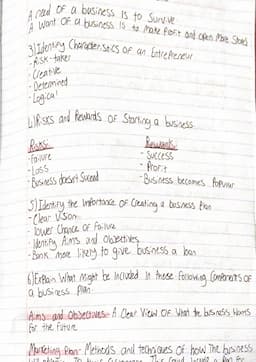 A need of a business is to survive
A want of a business is to make Profit and open more stores
3) Identify Characteristics of an Entrepreneur
- Risk-taker
- Creative
- Determined
- Logical
4) Risks and Rewards of Starting a business.
Risks:
Rewards:
- Failure
- Success
- Loss
- Profit
- Business doesn't Suceed
- Business becomes Popular
5) Identify the Importance of Creating a business Plan
- Clear Vision
- lower Chance of Failure
- Identify Aims and Objectives
- Bank more likely to give business a loan
6) Explain What might be Included in these Following Components of
a business plan.
Aims and Objectives- A Clear View of What the business Wants
for the future
Marketing Plan- Methods and techniques of how The business